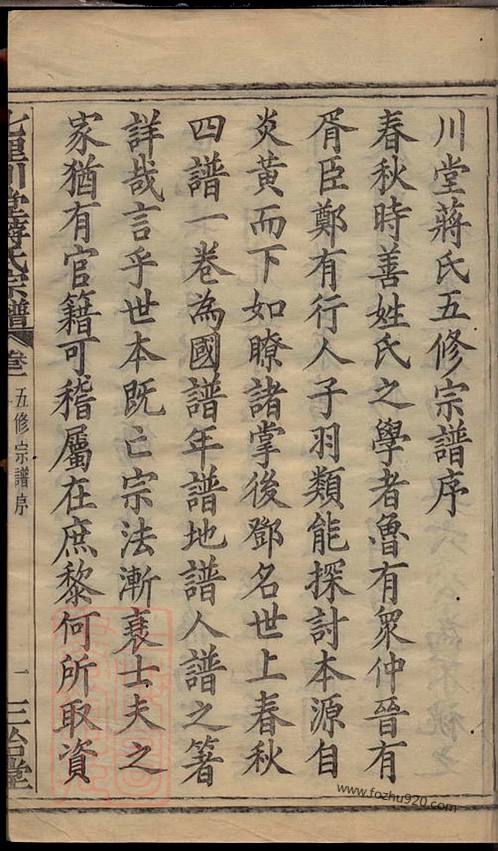 川堂蔣氏五修宗譜序
春秋時善姓氏之學者魯有眾仲晉有
胥臣鄭有行人子羽類能探討本源自
炎黃而下如瞭諸掌後鄧名世上春秋
四譜一卷為國譜年譜地譜人譜之箸
詳哉言乎世本既亡宗法漸衰士夫之
家猶有官籍可稽屬在庶黎何所取資
川堂蔣氏宗譜
卷一
五修宗譜序
一
三治堂
www.fozhu920.com